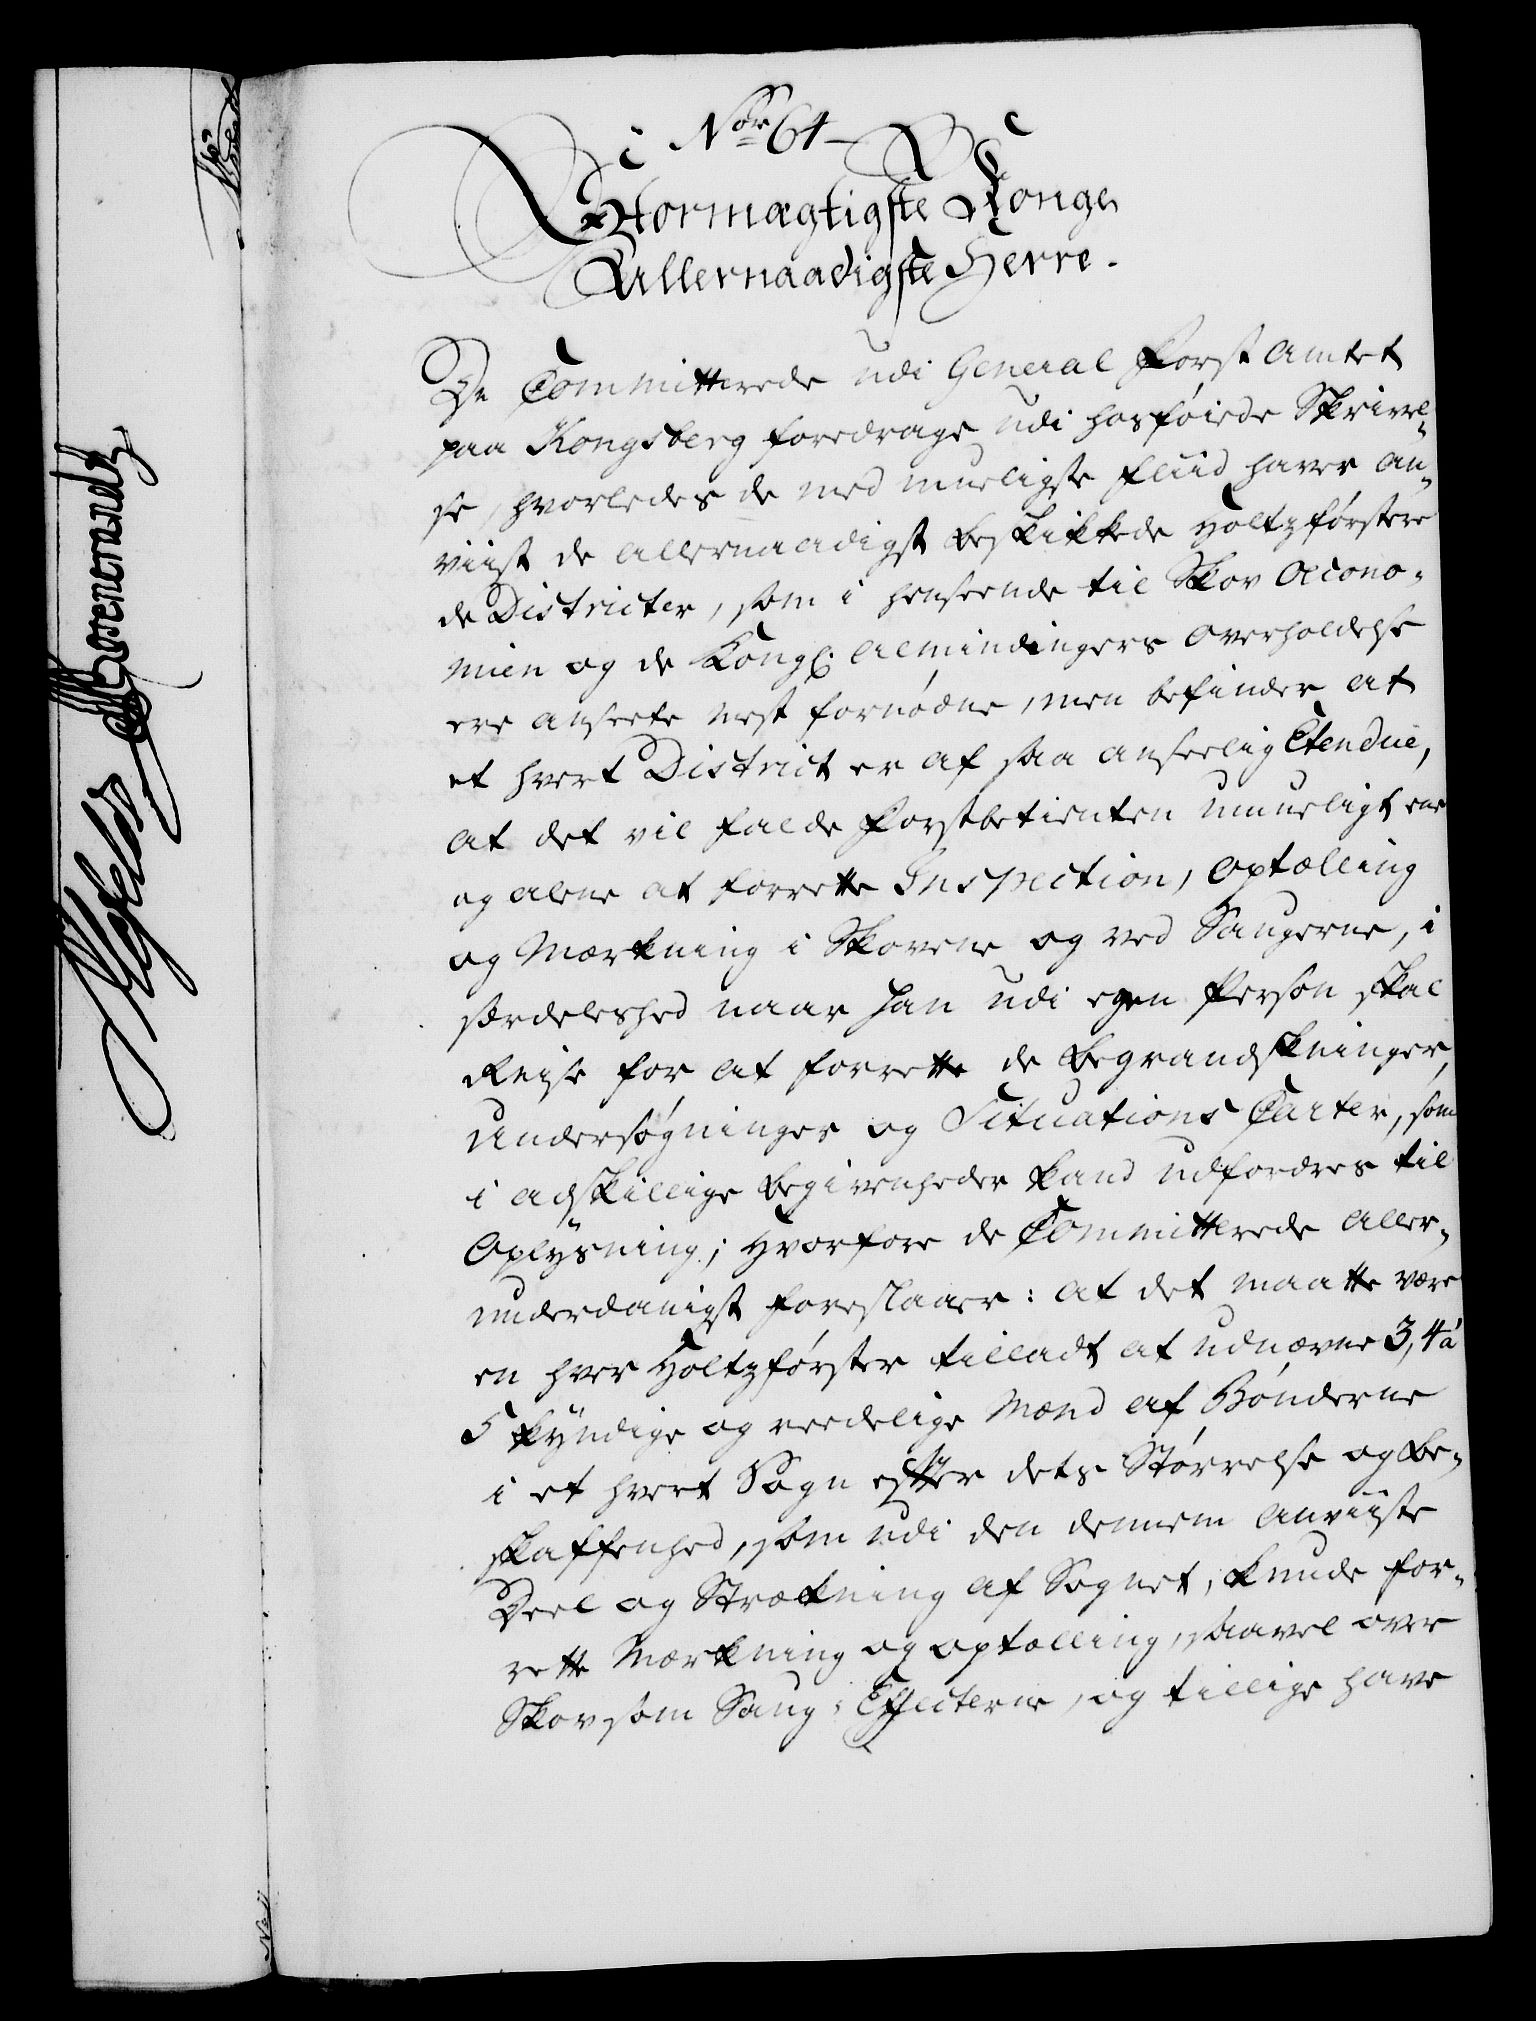 Nor 64
Stormægtigste Konge,
Allernaadigste Herre.
De Committerede udi General Forst Amtet
paa Kongsberg foredrage udi hosføiede Skrivel-
se, hvorledes de med mueligste Fliid haver an-
viist de allernaadigst beskikkede Holtzførstere
de Districter, som i henseende til Skov Oecono-
mien og de Kongl. Almindingers Overholdelse
ere anseete mest fornødne, men befinder at
et hvert District er af saa anseelig Etendue,
at det vil falde Forstbetienten umueligt ene
og alene at forrette Inspection, Optælling
og Mærkning i Skovene og ved Saugerne, i
særdeleshed naar han udi egen Person skal
Reise for at forrette de Begrandskninger,
Undersøgninger og Situations Carter, som
i adskillige Begivenheder kand udfordres til
Oplysning; Hvorfore de Committerede aller-
underdanigst foreslaaer: at det maatte være
en hver Holtzførster tilladt at udnævne 3, 4 á
5 kyndige og reedelige Mænd af Bønderne
i et hvert Sogn efter dets Størrelse og Be-
skaffenhed, som udi den dennem anviiste
Deel og Strækning af Sognet, kunde for-
rette Mærkning og optælling, saavel over
Skov som Saug-Effecterne, og tillige have